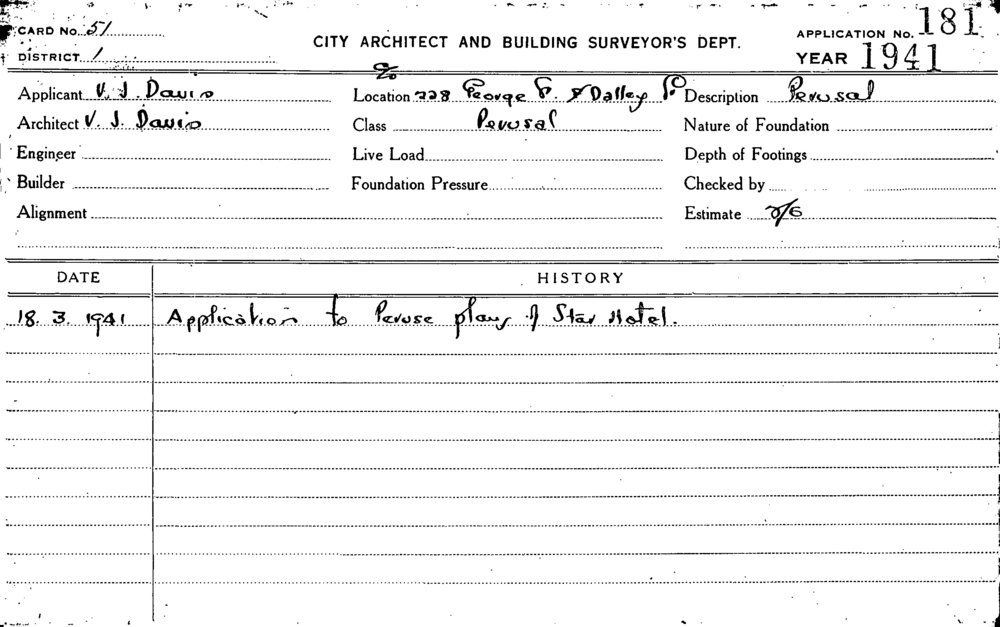 CARD No. 51
DISTRICT 1
CITY ARCHITECT AND BUILDING SURVEYOR'S DEPT.
APPLICATION No. 181
YEAR 1941
Applicant V. J. Davis
Architect V. J. Davis
Engineer
Builder
Alignment
c/o
Location 228 George St. & Dalley St
Class Perusal
Live Load
Foundation Pressure
Description Perusal
Nature of Foundation
Depth of Footings
Checked by
Estimate 2/6
DATE HISTORY
18. 3. 1941 Application to Peruse plans of Star Hotel.